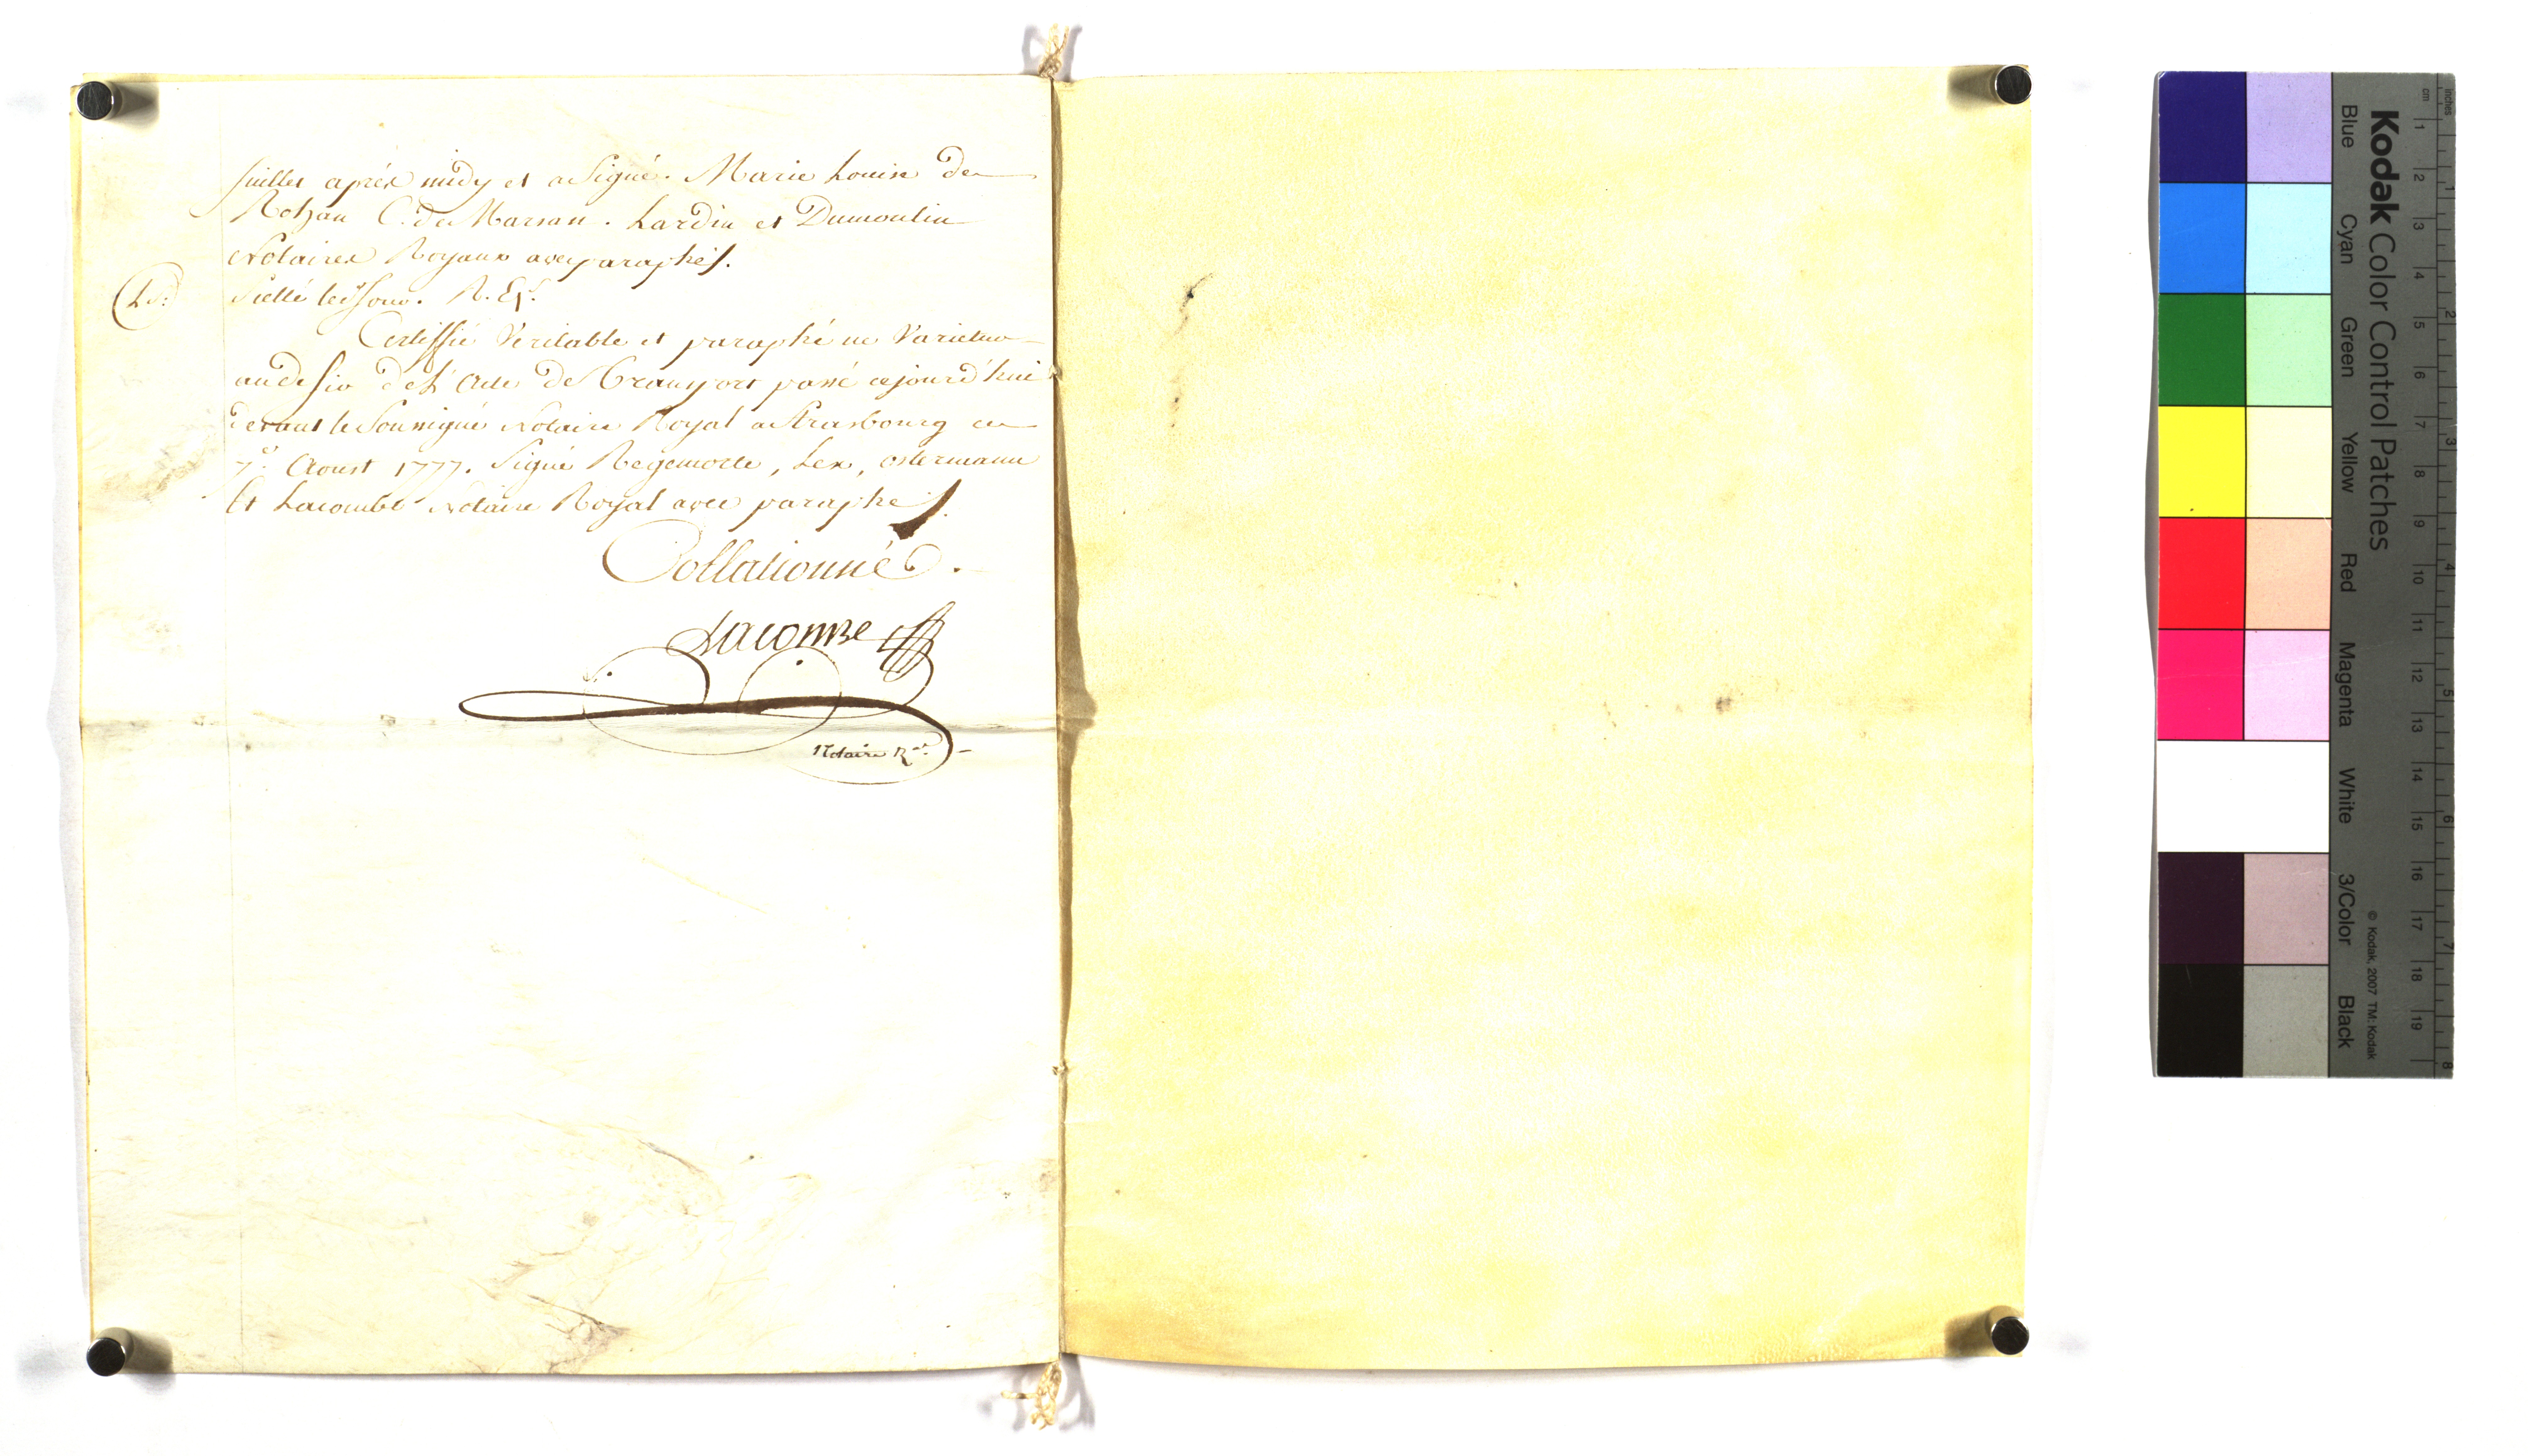 Juillet après midy et a Signé. Marie Louise de
Rohan C. de Marsan. Lardin et Dumoulin
Notaires Royaux avec paraphes.
(L.S.) Scellé lesd. jour.
Certiffié Veritable et paraphé ne Varietur
au desir de l'Acte de Transport passé cejourd'hui
devant le Soussigné Notaire Royal a Strasbourg ce
7e. Aoust 1777. Signé Regemorte, Lex, Ostermann
et Lacombe Notaire Royal avec paraphes.
Collationné.
Lacombe
Notaire R.al
Kodak Color Control Patches
Blue Cyan Green Yellow Red Magenta White 3/Color Black
© Kodak, 2007 TM: Kodak
cm 1 2 3 4 5 6 7 8 9 10 11 12 13 14 15 16 17 18 19
inches 1 2 3 4 5 6 7 8